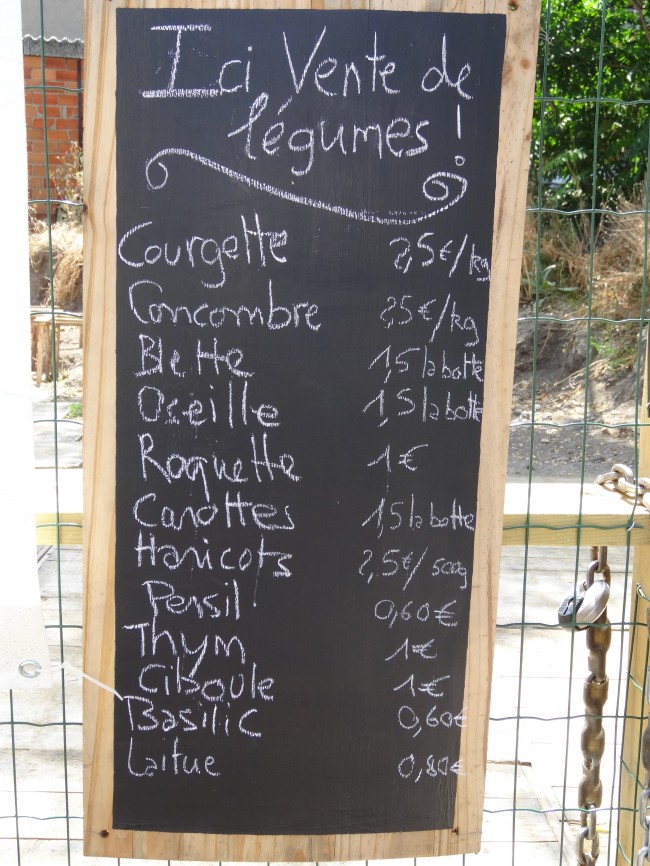 Ici Vente de
légumes !
Courgette 2,5€/kg
Concombre 2,5€/kg
Blette 1,5 la botte
Oseille 1,5 la botte
Roquette 1€
Carottes 1,5 la botte
Haricots 2,5€/500g
Persil 0,60€
Thym 1€
Ciboule 1€
Basilic 0,60€
Laitue 0,80€